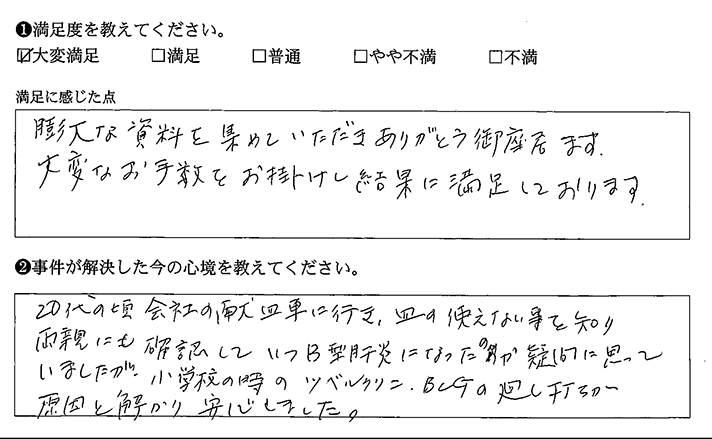 ❶満足度を教えてください。
☑大変満足 □満足 □普通 □やや不満 □不満
満足に感じた点
膨大な資料を集めていただきありがとう御座居ます.
大変なお手数をお掛けし結果に満足しております.
❷事件が解決した今の心境を教えてください。
20代の頃会社の献血車に行き、血の使えない事を知り
両親にも確認していつB型肝炎になったのか疑問に思って
いましたが、小学校の時のツベルクリン.BCGの廻し打ちが
原因と解かり安心しました。